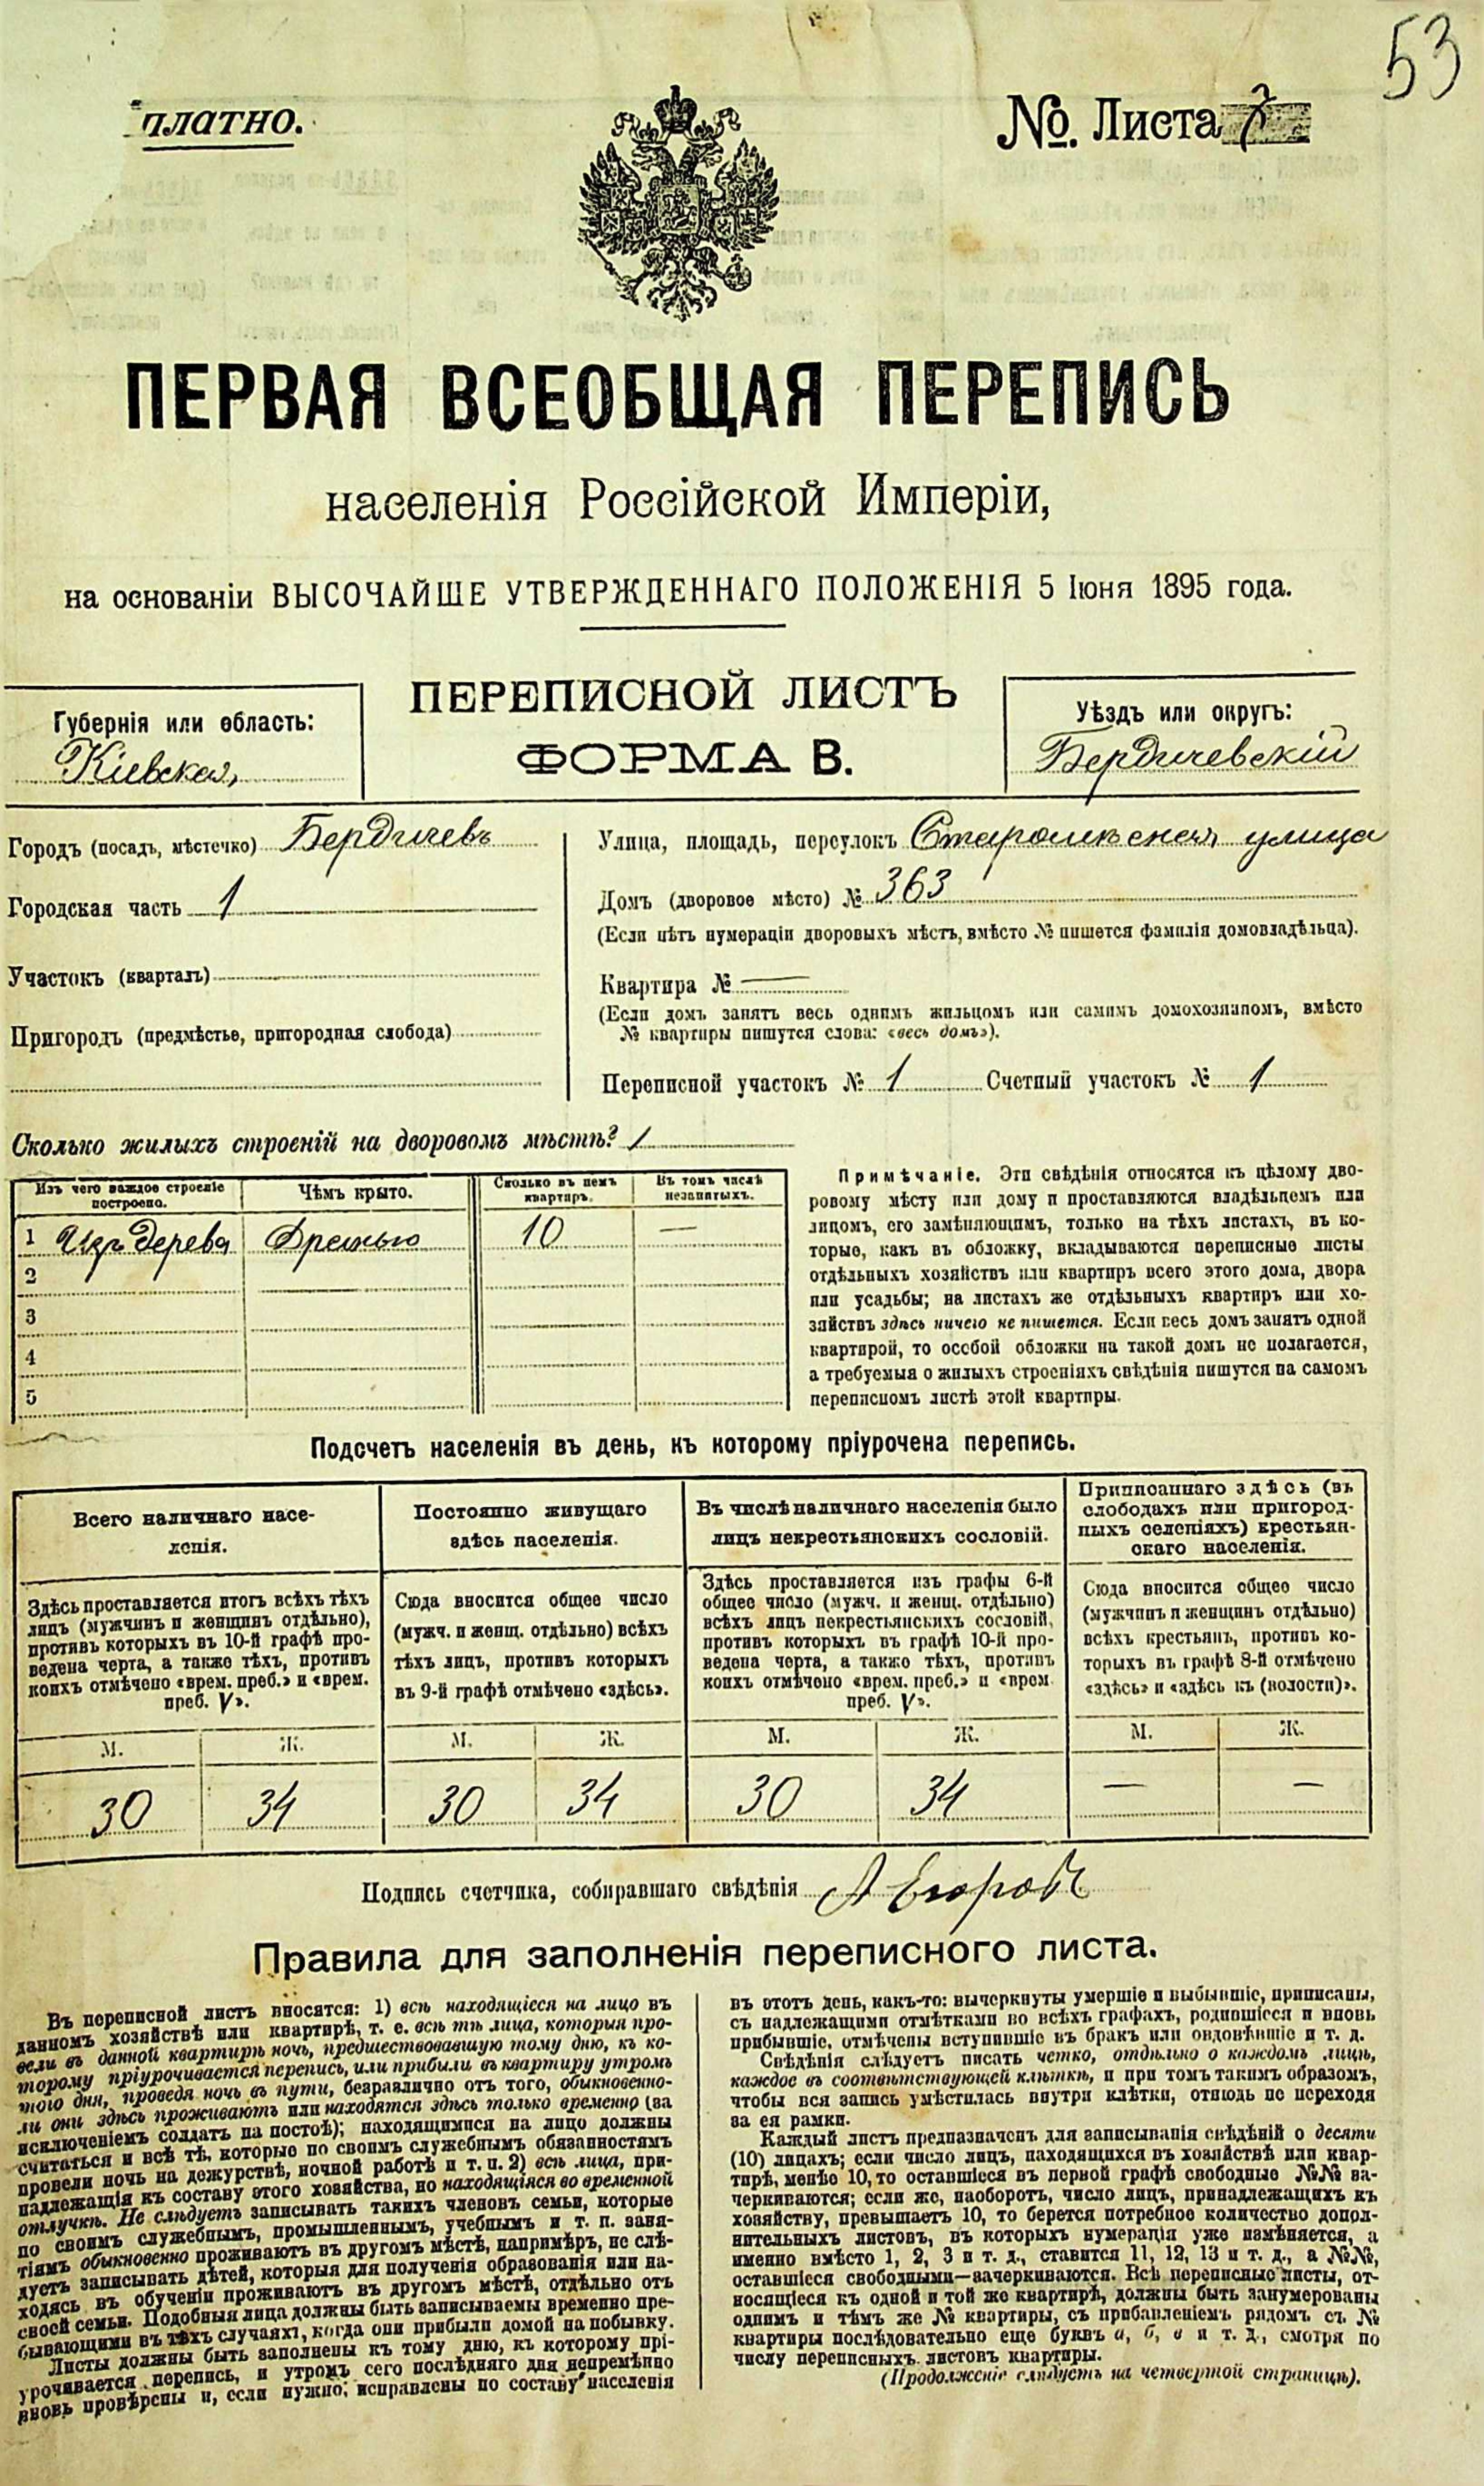 53
платно.
№. Листа 7
ПЕРВАЯ ВСЕОБЩАЯ ПЕРЕПИСЬ
населенія Россійской Имперіи,
на основаніи ВЫСОЧАЙШЕ УТВЕРЖДЕННАГО ПОЛОЖЕНІЯ 5 Іюня 1895 года.
ПЕРЕПИСНОЙ ЛИСТЪ
ФОРМА В.
Губернія или область:
Кіевская,
Уѣздъ или округъ:
Бердичевскій
Городъ (посадъ, мѣстечко) Бердичевъ
Городская часть 1
Участокъ (кварталъ)
Пригородъ (предмѣстье, пригородная слобода)
Улица, площадь, переулокъ улица
Домъ (дворовое мѣсто) № 363
(Если нѣтъ нумераціи дворовыхъ мѣстъ, вмѣсто № пишется фамилія домовладѣльца).
Квартира № —
(Если домъ занятъ весь однимъ жильцомъ или самимъ домохозяиномъ, вмѣсто
№ квартиры пишутся слова: «весь домъ»).
Переписной участокъ № 1 Счетный участокъ № 1
Сколько жилыхъ строеній на дворовомъ мѣстѣ? 1
Изъ чего каждое строеніе
построено.
Чѣмъ крыто.
Сколько въ немъ
квартиръ.
Въ томъ числѣ
незанятыхъ.
1 Изъ дерева Дранью 10 —
2
3
4
5
Примѣчаніе. Эти свѣдѣнія относятся къ цѣлому дво-
ровому мѣсту или дому и проставляются владѣльцемъ или
лицомъ, его замѣняющимъ, только на тѣхъ листахъ, въ ко-
торые, какъ въ обложку, вкладываются переписные листы
отдѣльныхъ хозяйствъ или квартиръ всего этого дома, двора
или усадьбы; на листахъ же отдѣльныхъ квартиръ или хо-
зяйствъ здѣсь ничего не пишется. Если весь домъ занятъ одной
квартирой, то особой обложки на такой домъ не полагается,
а требуемыя о жилыхъ строеніяхъ свѣдѣнія пишутся на самомъ
переписномъ листѣ этой квартиры.
Подсчетъ населенія въ день, къ которому пріурочена перепись.
Всего наличнаго насе-
ленія.
Здѣсь проставляется итогъ всѣхъ тѣхъ
лицъ (мужчинъ и женщинъ отдѣльно),
противъ которыхъ въ 10-й графѣ про-
ведена черта, а также тѣхъ, противъ
коихъ отмѣчено «врем. преб.» и «врем.
преб. V».
М. Ж.
30 34
Постоянно живущаго
здѣсь населенія.
Сюда вносится общее число
(мужч. и женщ. отдѣльно) всѣхъ
тѣхъ лицъ, противъ которыхъ
въ 9-й графѣ отмѣчено «здѣсь».
М. Ж.
30 34
Въ числѣ наличнаго населенія было
лицъ некрестьянскихъ сословій.
Здѣсь проставляется изъ графы 6-й
общее число (мужч. и женщ. отдѣльно)
всѣхъ лицъ некрестьянскихъ сословій,
противъ которыхъ въ графѣ 10-й про-
ведена черта, а также тѣхъ, противъ
коихъ отмѣчено «врем. преб.» и «врем.
преб. V».
М. Ж.
30 34
Приписаннаго здѣсь (въ
слободахъ или пригород-
ныхъ селеніяхъ) крестьян-
скаго населенія.
Сюда вносится общее число
(мужчинъ и женщинъ отдѣльно)
всѣхъ крестьянъ, противъ ко-
торыхъ въ графѣ 8-й отмѣчено
«здѣсь» и «здѣсь къ (волости)».
М. Ж.
— —
Подпись счетчика, собиравшаго свѣдѣнія А Егоровъ
Правила для заполненія переписного листа.
Въ переписной листъ вносятся: 1) всѣ находящіеся на лицо въ
данномъ хозяйствѣ или квартирѣ, т. е. всѣ тѣ лица, которыя про-
вели въ данной квартирѣ ночь, предшествовавшую тому дню, къ ко-
торому пріурочивается перепись, или прибыли въ квартиру утромъ
того дня, проведя ночь въ пути, безразлично отъ того, обыкновенно-
ли они здѣсь проживаютъ или находятся здѣсь только временно (за
исключеніемъ солдатъ на постоѣ); находящимися на лицо должны
считаться и всѣ тѣ, которые по своимъ служебнымъ обязанностямъ
провели ночь на дежурствѣ, ночной работѣ и т. п. 2) всѣ лица, при-
надлежащія къ составу этого хозяйства, но находящіяся во временной
отлучкѣ. Не слѣдуетъ записывать такихъ членовъ семьи, которые
по своимъ служебнымъ, промышленнымъ, учебнымъ и т. п. заня-
тіямъ обыкновенно проживаютъ въ другомъ мѣстѣ, напримѣръ, не слѣ-
дуетъ записывать дѣтей, которыя для полученія образованія или на-
ходясь въ обученіи проживаютъ въ другомъ мѣстѣ, отдѣльно отъ
своей семьи. Подобныя лица должны быть записываемы временно пре-
бывающими въ тѣхъ случаяхъ, когда они прибыли домой на побывку.
Листы должны быть заполнены къ тому дню, къ которому прі-
урочивается перепись, и утромъ сего послѣдняго дня непремѣнно
вновь провѣрены и, если нужно, исправлены по составу населенія
въ этотъ день, какъ-то: вычеркнуты умершіе и выбывшіе, приписаны,
съ надлежащими отмѣтками во всѣхъ графахъ, родившіеся и вновь
прибывшіе, отмѣчены вступившіе въ бракъ или овдовѣвшіе и т. д.
Свѣдѣнія слѣдуетъ писать четко, отдѣльно о каждомъ лицѣ,
каждое въ соотвѣтствующей клѣткѣ, и при томъ такимъ образомъ,
чтобы вся запись умѣстилась внутри клѣтки, отнюдь не переходя
за ея рамки.
Каждый листъ предназначенъ для записыванія свѣдѣній о десяти
(10) лицахъ; если число лицъ, находящихся въ хозяйствѣ или квар-
тирѣ, менѣе 10, то оставшіеся въ первой графѣ свободные №№ за-
черкиваются; если же, наоборотъ, число лицъ, принадлежащихъ къ
хозяйству, превышаетъ 10, то берется потребное количество допол-
нительныхъ листовъ, въ которыхъ нумерація уже измѣняется, а
именно вмѣсто 1, 2, 3 и т. д., ставится 11, 12, 13 и т. д., а №№,
оставшіеся свободными—зачеркиваются. Всѣ переписные листы, от-
носящіеся къ одной и той же квартирѣ, должны быть занумерованы
однимъ и тѣмъ же № квартиры, съ прибавленіемъ рядомъ съ №
квартиры послѣдовательно еще буквъ а, б, в и т. д., смотря по
числу переписныхъ листовъ квартиры.
(Продолженіе слѣдуетъ на четвертой страницѣ).